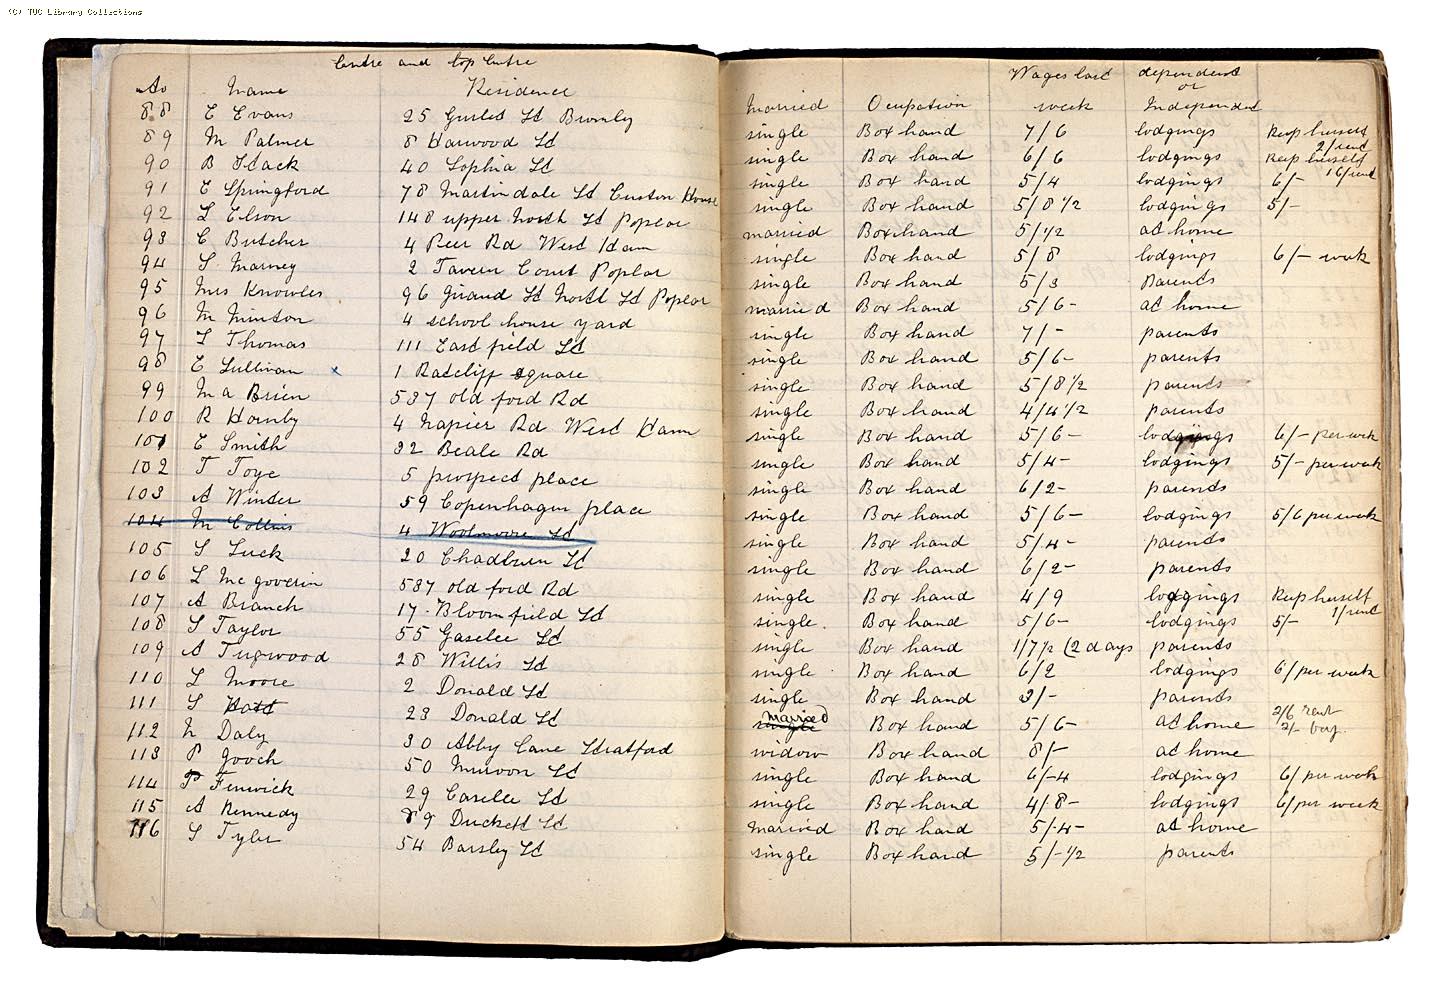 (C) TUC Library Collections
Centre and top Centre
No Name Residence Married Ocupation Wages last week dependent or Independent
88 E Evans 25 Gurley St Bromley single Box hand 7/6 lodgings Keep herself 2/ rent
89 M Palmer 8 Harwood St single Box hand 6/6 lodgings Keep herself 1 6/ rent
90 B Slack 40 Sophia St single Box hand 5/4 lodgings 6/-
91 E Springford 78 Martindale St Custon House single Box hand 5/8 1/2 lodgings 5/-
92 L Elson 148 upper North St Poplar married Box hand 5/1/2 at home
93 C Butcher 4 Peer Rd West Ham single Box hand 5/8 lodgings 6/- week
94 S Marney 2 Tavern Court Poplar single Box hand 5/3 Parents
95 Mrs Knowles 96 Giraud St North St Poplar married Box hand 5/6- at home
96 M Minton 4 school house yard single Box hand 7/- parents
97 S Thomas 111 East field St single Box hand 5/6- parents
98 E Sullivan x 1 Ratcliff square single Box hand 5/8 1/2 parents
99 M a Brien 537 old ford Rd single Box hand 4/4 1/2 parents
100 R Hornby 4 Napier Rd West Ham single Box hand 5/6- lodgings 6/- per wek
101 E Smith 32 Beale Rd single Box hand 5/4- lodgings 5/- per week
102 T Toye 5 prospect place single Box hand 6/2- parents
103 A Winter 59 Copenhagen place single Box hand 5/6- lodgings 5/6 per week
104 M Collins 4 Woolmoore St single Box hand 5/4- parents
105 S Luck 20 Chadburn St single Box hand 6/2- parents
106 L Mc goverin 537 old ford Rd single Box hand 4/9 lodgings Keep herself 1/ rent
107 A Branch 17 Bloomfield St single Box hand 5/6- lodgings 5/-
108 S Taylor 55 Gaselee St single Box hand 1/7 1/2 (2 days parents
109 A Tugwood 28 Willis St single Box hand 6/2 lodgings 6/ per week
110 L Moore 2 Donald St single Box hand 3/- parents
111 S 23 Donald St single married Box hand 5/6- at home 2/6 rent 2/-
112 N Daly 30 Abby Lane Stratford widow Box hand 8/- at home
113 P gooch 50 St single Box hand 6/-4 lodgings 6/ per week
114 P Fenwick 29 Caselee St single Box hand 4/8- lodgings 6/ per week
115 A Kennedy 89 Duckett St Married Box hand 5/.4- at home
116 S Tyler 54 Barsley St single Box hand 5/-1/2 parents